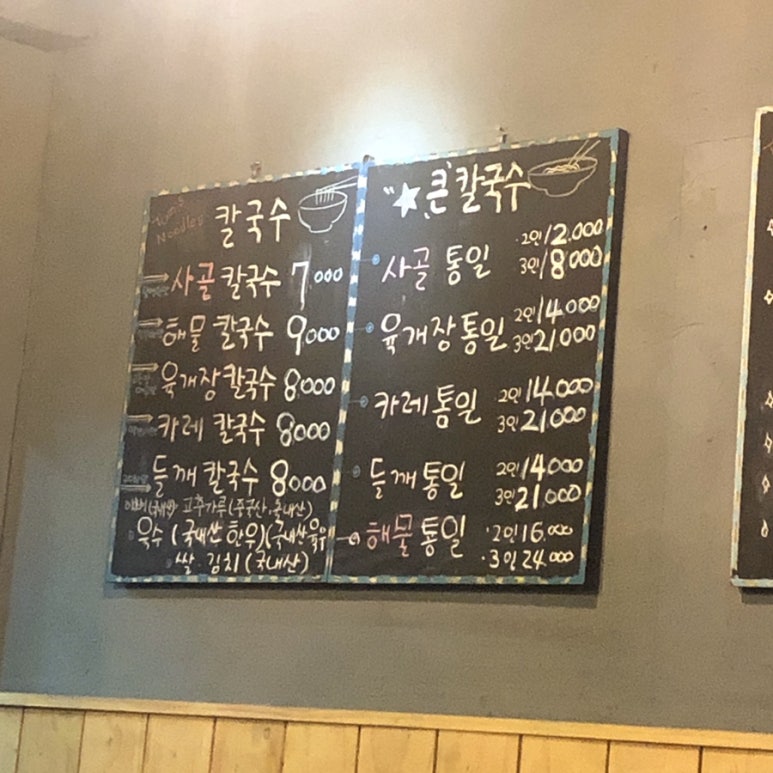 Noodles
칼국수
사골 칼국수 7,000
해물 칼국수 9000
육개장 칼국수 8000
카레 칼국수 8000
들깨 칼국수 8000
고추가루(중국산,국내산)
육수 (국내산 한우)(국내산육우)
쌀 · 김치 (국내산)
"★큰"칼국수
사골 통일 2인 12.000
3인 18.000
육개장 통일 2인 14.000
3인 21.000
카레 통일 2인 14.000
3인 21.000
들깨 통일 2인 14000
3인 21000
해물 통일 2인 16.000
3인 24.000